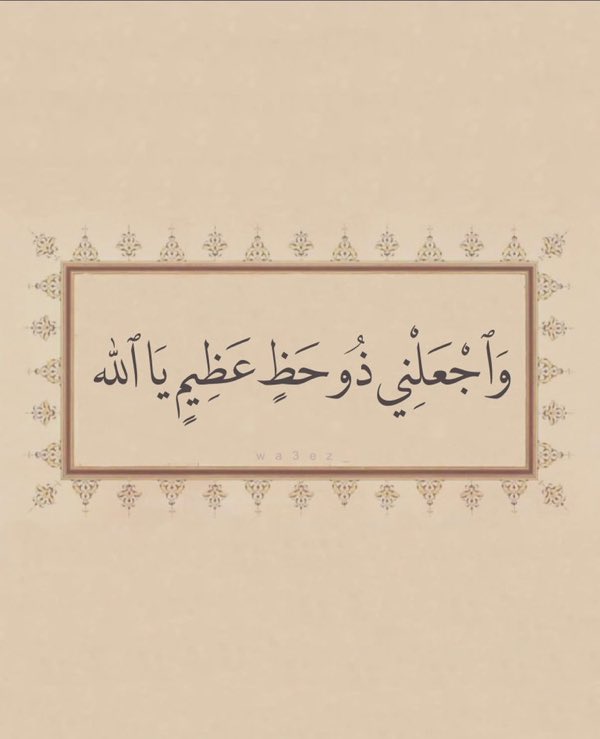 وَٱجْعَلْنِي ذُو حَظٍ عَظِيمٍ يَا ٱلله
wa3ez_